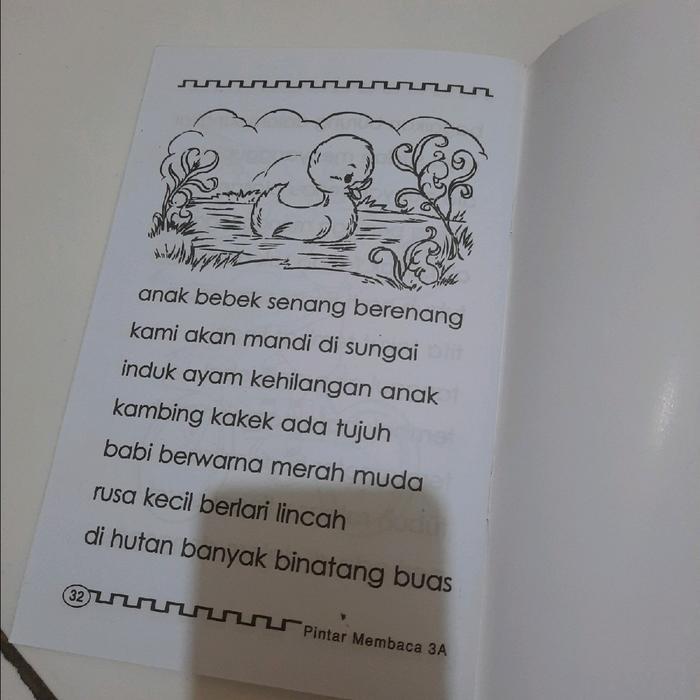 anak bebek senang berenang
kami akan mandi di sungai
induk ayam kehilangan anak
kambing kakek ada tujuh
babi berwarna merah muda
rusa kecil berlari lincah
di hutan banyak binatang buas
32
Pintar Membaca 3A